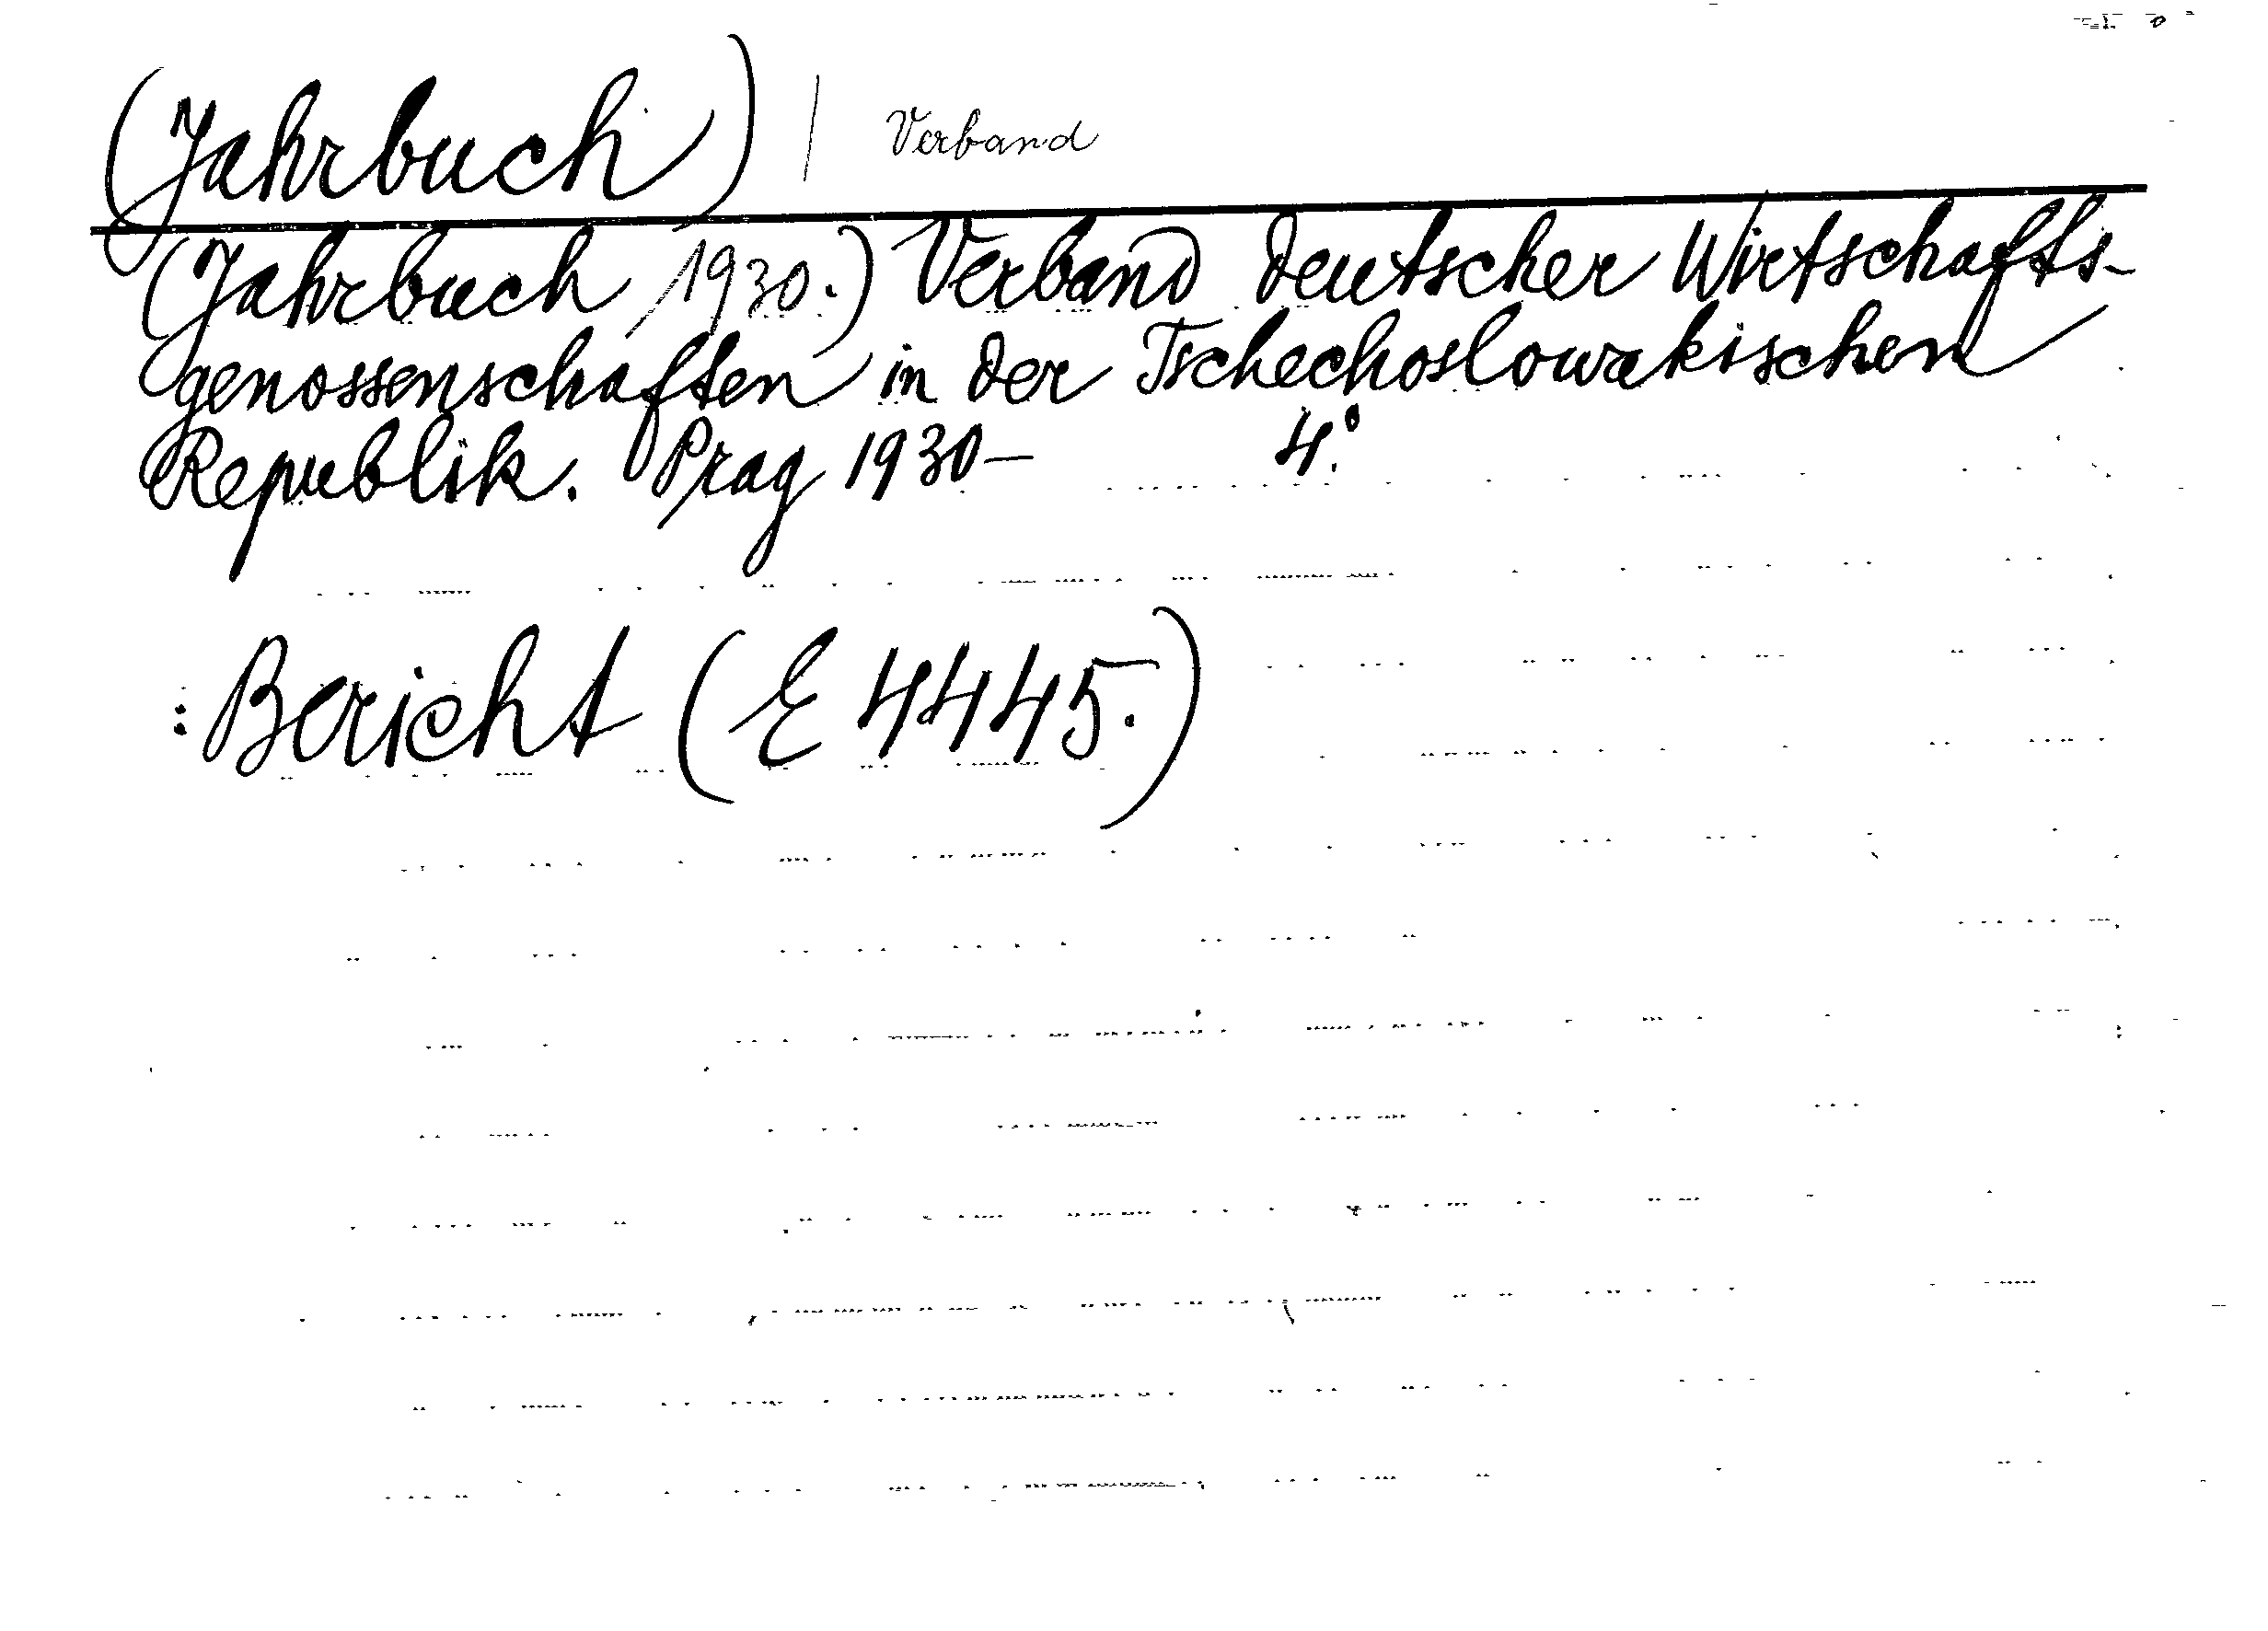 (Jahrbuch) | Verband
(Jahrbuch 1930.) Verband deutscher Wirtschafts-
genossenschaften in der Tschechoslowakischen
Republik. Prag 1930— 4°.
: Bericht (E 4445.)